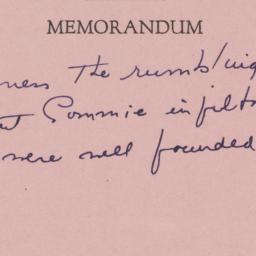 MEMORANDUM
ness the rumbling
t Commie infilt
were well founded